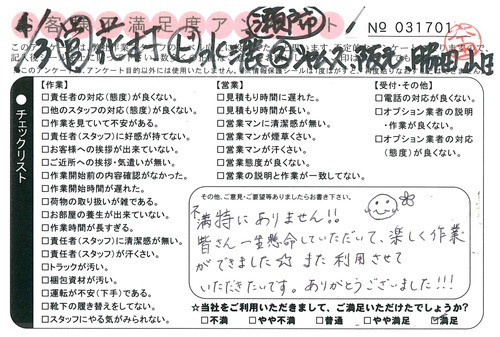 お客様満足度アンケート
瀬戸市
№ 031701
【作業】
□責任者の対応(態度)が良くない。
□他のスタッフの対応(態度)が良くない。
□作業を見ていて不安がある。
□責任者(スタッフ)に好感が持てない。
□お客様への挨拶が出来ていない。
□ご近所への挨拶・気遣いが無い。
□作業開始前の内容確認がなかった。
□作業開始時間が遅れた。
□荷物の取り扱いが雑である。
□お部屋の養生が出来ていない。
□作業時間が長すぎる。
□責任者(スタッフ)に清潔感が無い。
□責任者(スタッフ)が汗くさい。
□トラックが汚い。
□梱包資材が汚い。
□運転が不安(下手)である。
□靴下の履き替えをしてない。
□スタッフにやる気がみられない。
【営業】
□見積もり時間に遅れた。
□見積もり時間が長い。
□営業マンに清潔感が無い。
□営業マンが煙草くさい。
□営業マンが汗くさい。
□営業態度が良くない。
□営業の説明と作業が一致してない。
【受付・その他】
□電話の対応が良くない。
□オプション業者の説明
・作業が良くない。
□オプション業者の対応
(態度)が良くない。
チェックリスト
その他、ご意見・ご要望等ありましたらお書き下さい。
不満特にありません!!
皆さん一生懸命していただいて、楽しく作業
ができました☆ また利用させて
いただきたいです。ありがとうございました!!!
☆当社をご利用いただきまして、ご満足いただけたでしょうか?
□不満 □やや不満 □普通 □やや満足 ☑満足